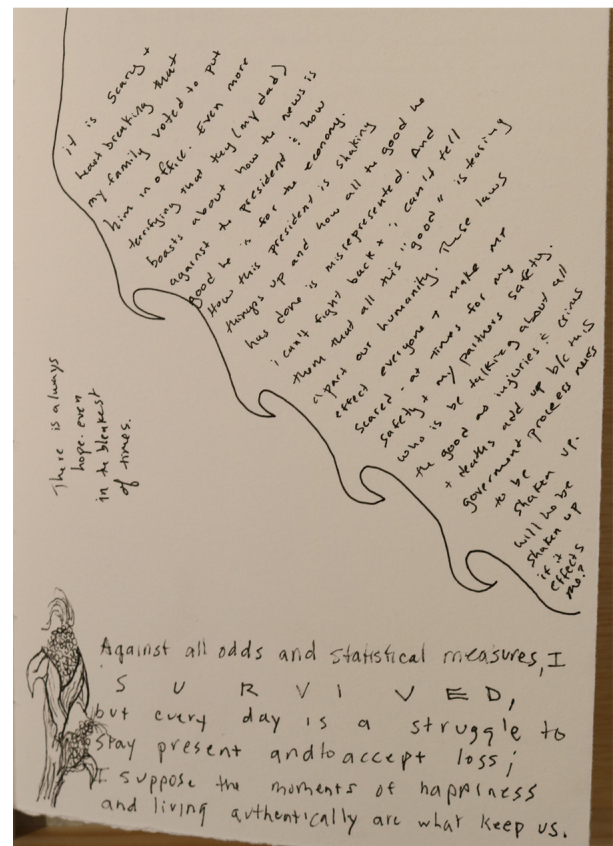 it is scary +
heartbreaking that
my family voted to put
him in office. Even more
terrifying that they (my dad)
boasts about how the news is
against the president & how
good he is for the economy.
How this president is shaking
things up and how all the good he
has done is misrepresented. And
i can't fight back + i can't tell
them that all this "good" is tearing
apart our humanity. These laws
effect everyone + make me
scared - at times for my
safety + my partners safety.
who is be talking about all
the good as injuries & crimes
+ deaths add up b/c this
goverment process needs
to be
shaken up.
will he be
shaken up
if it
effects
me?
There is always
hope. even
in the bleakest
of times.
Against all odds and statistical measures, I
S U R V I V E D,
but every day is a struggle to
stay present and to accept loss;
I suppose the moments of happiness
and living authentically are what keep us.